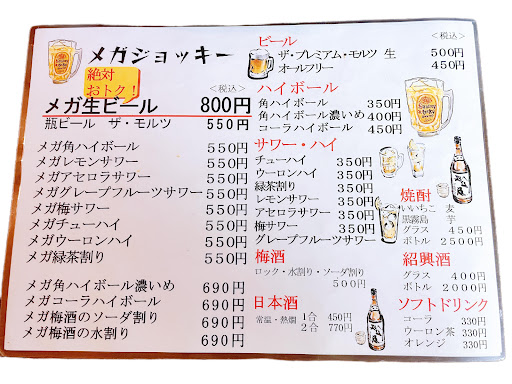 メガジョッキー
絶対
おトク！
<税込>
メガ生ビール 800円
瓶ビール ザ・モルツ 550円
メガ角ハイボール 550円
メガレモンサワー 550円
メガアセロラサワー 550円
メガグレープフルーツサワー 550円
メガ梅サワー 550円
メガチューハイ 550円
メガウーロンハイ 550円
メガ緑茶割り 550円
メガ角ハイボール濃いめ 690円
メガコーラハイボール 690円
メガ梅酒のソーダ割り 690円
メガ梅酒の水割り 690円
ビール <税込>
ザ・プレミアム・モルツ 生 500円
オールフリー 450円
ハイボール
角ハイボール 350円
角ハイボール濃いめ 400円
コーラハイボール 450円
サワー・ハイ
チューハイ 350円
ウーロンハイ 350円
緑茶割り 350円
レモンサワー 350円
アセロラサワー 350円
梅サワー 350円
グレープフルーツサワー 350円
梅酒
ロック・水割り・ソーダ割り
500円
日本酒
常温・熱燗 1合 450円
2合 770円
焼酎
いいちこ 麦
黒霧島 芋
グラス 450円
ボトル 2500円
紹興酒
グラス 400円
ボトル 2000円
ソフトドリンク
コーラ 330円
ウーロン茶 330円
オレンジ 330円